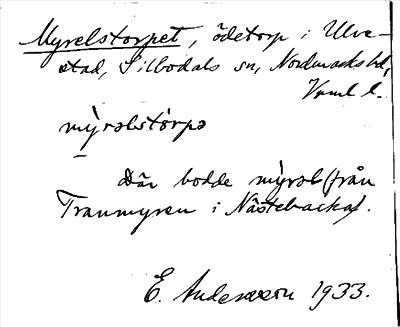 Myrelstorpet, ödetorp i Ulve-
stad, Silbodals sn, Nordmarks hd,
Värml l.
mỳrəlstòrpə
Där bodde mỳrəl (från
Tranmyren i Nästebacka).
E. Andersson 1933.